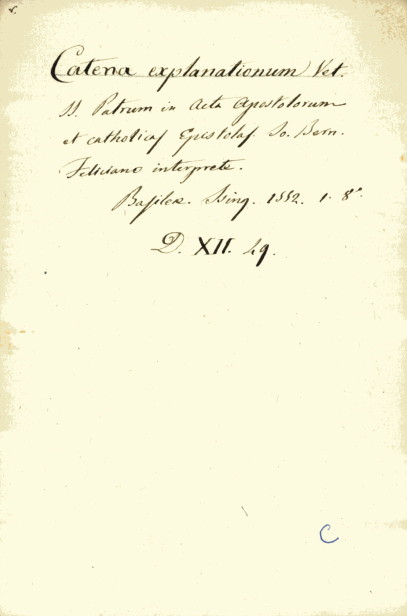 Catena explanationum Vet.
SS. Patrum in Acta Apostolorum
et catholicas Epistolas Jo. Bern.
Feliciano interprete.
Basileæ. Ising. 1552. 1. 8°
D. XII. 49.
C